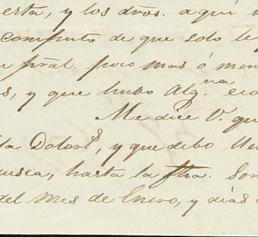 erta, y los dros. aqui
computo de que solo le p
pral. poco mas ó men
s, y que hubo Alg.na
Me dice V. qu
la Dolor.s, y que debo
usca, hasta la fha.
del mes de Enero, y dias